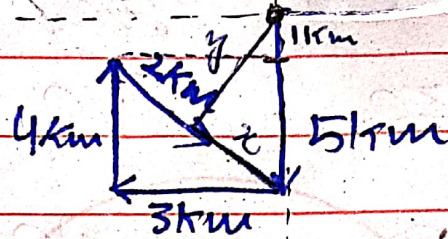 y
1km
2km
4km
x
5km
3km